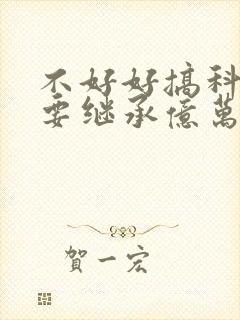 不好好搞科
要继承億萬
賀一宏